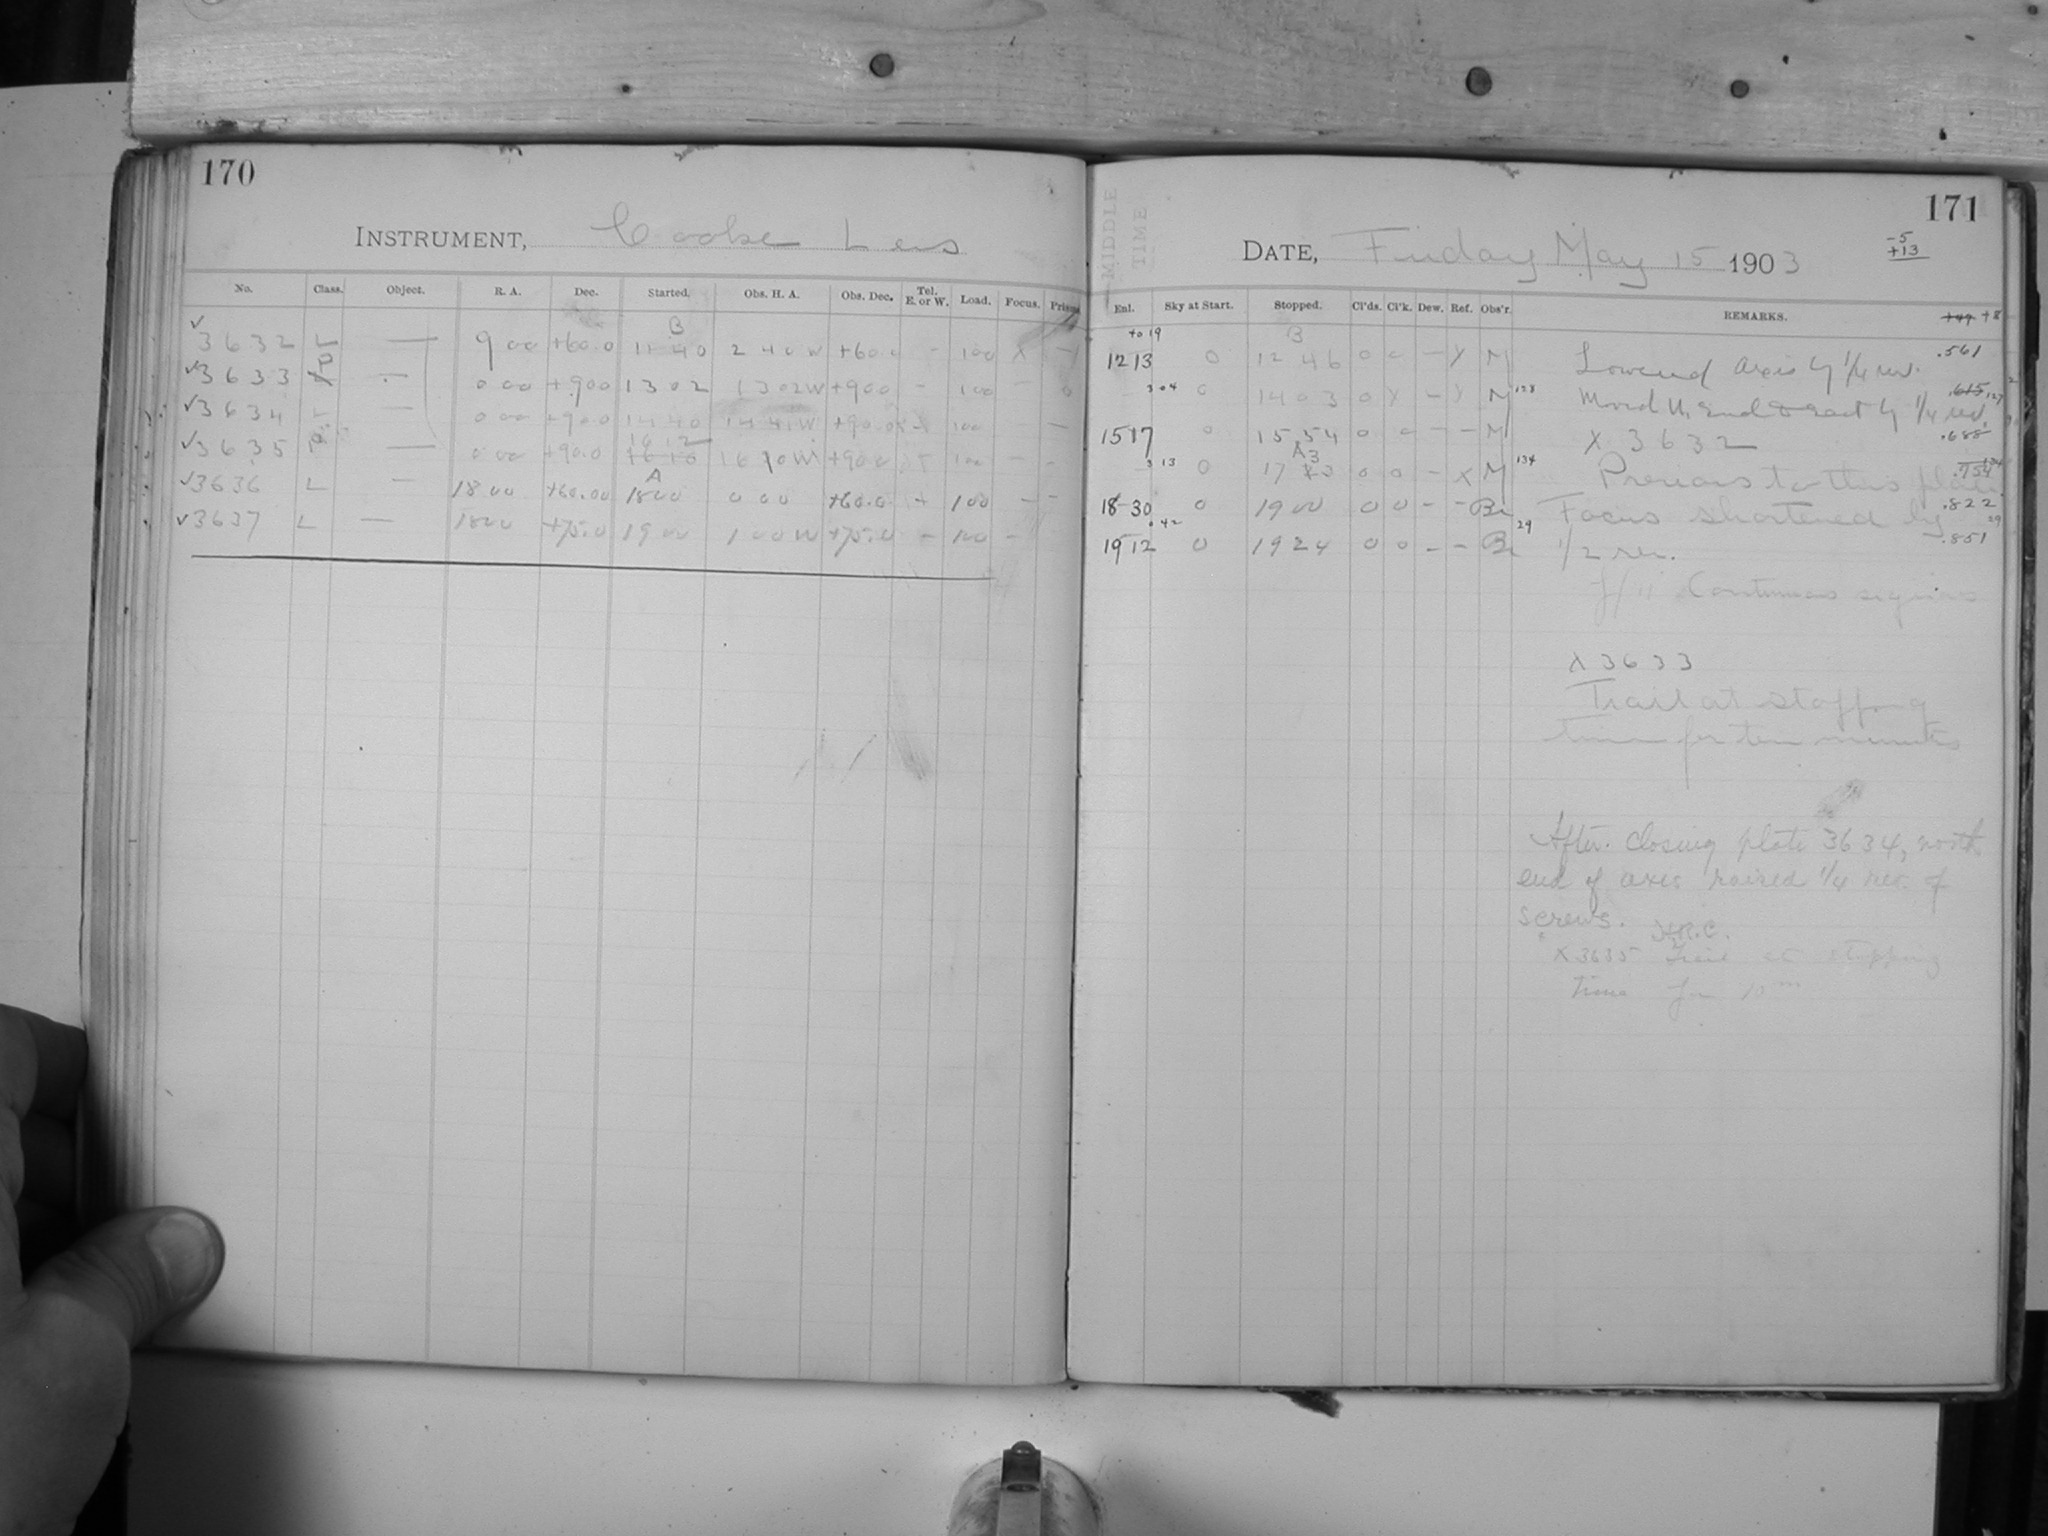 170
INSTRUMENT, Cooke Lens
No. Class. Object. R. A. Dec. Started. Obs. H. A. Obs. Dec. Tel. E. or W. Load. Focus. Prism
B
✓ 3632 L — 9 00 +60.0 11 40 2 40 W +60.0 - 100 X -
✓3633 P — 0 00 +90.0 13 02 13 02 W +90.0 - 100 - 0
✓3634 L — 0 00 +90.0 14 40 14 41 W +90.0 100 - -
16 12
✓3635 P — 0 00 +90.0 16 10 16 10 W +90.0 100 - -
A
✓3636 L — 18 00 +60.00 18 00 0 00 +60.0 + 100 - -
✓3637 L — 18 00 +75.0 19 00 1 00 W +75.0 - 100 -
171
MIDDLE
TIME
DATE, Friday May 15 1903
-5
+13
Enl. Sky at Start. Stopped. Cl'ds. Cl'k. Dew. Ref. Obs'r. REMARKS. +8
to 19 B
12 13 0 12 46 0 0 - X M Lowered axis by 1/4 rev. .561
3 04 0 14 03 0 X - X M 128 Moved N. end to East by 1/4 rev. .615 127
15 17 0 15 54 0 0 - - M X 3632 .688
A3
3 13 0 17 0 0 - X M 134 Previous to this plate .754 134
18-30 0 19 00 0 0 - - Br Focus shortened by .822
0 42 29 29
19 12 0 19 24 0 0 - - Br 1/2 rev. .851
X 3633
Trail at stopping
time for ten minutes
After closing plate 3634, north
end of axis raised 1/4 rev. of
screws.
X 3635 Trail at stopping
time for 10 m